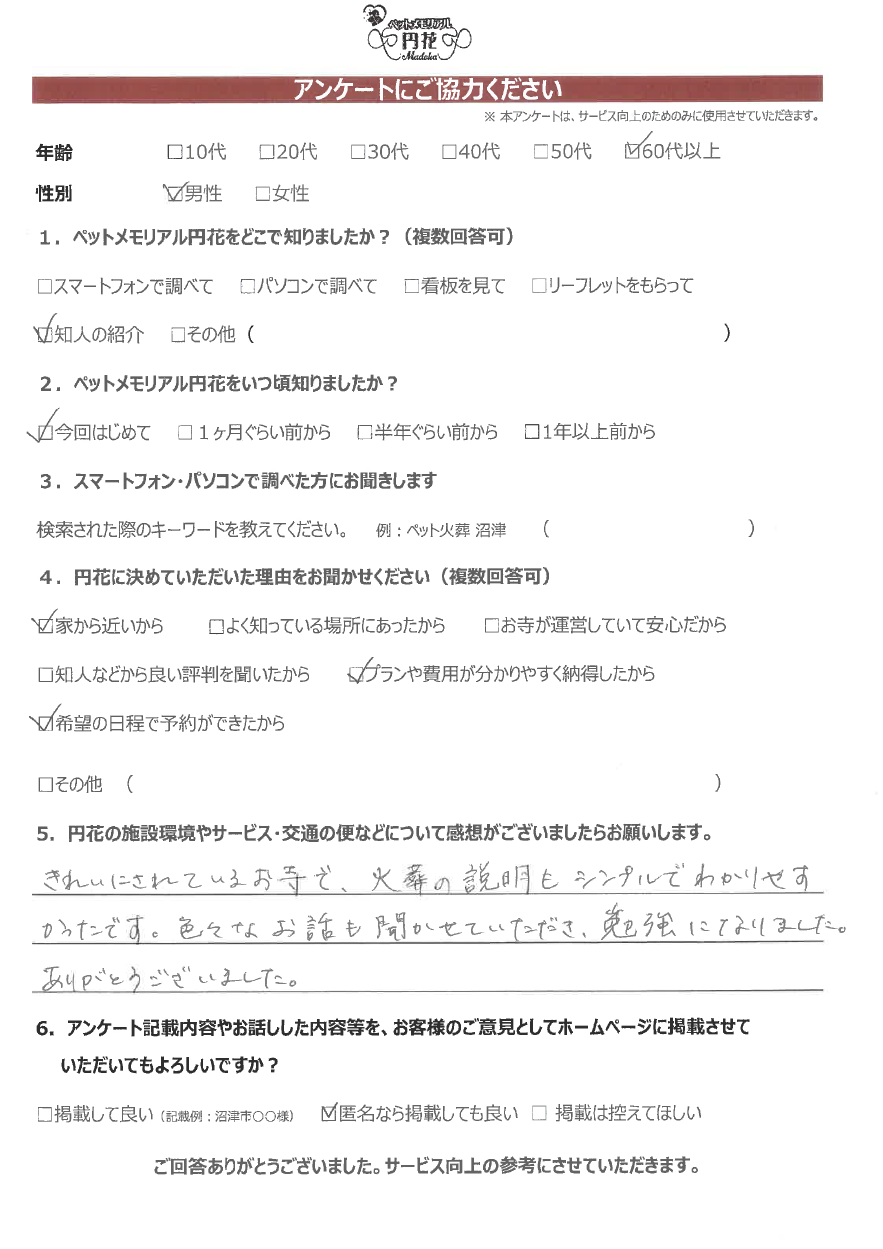 ペットメモリアル
円花
Madoka
アンケートにご協力ください
※ 本アンケートは、サービス向上のためのみに使用させていただきます。
年齢 □10代 □20代 □30代 □40代 □50代 ☑60代以上
性別 ☑男性 □女性
1．ペットメモリアル円花をどこで知りましたか？（複数回答可）
□スマートフォンで調べて □パソコンで調べて □看板を見て □リーフレットをもらって
☑知人の紹介 □その他（ ）
2．ペットメモリアル円花をいつ頃知りましたか？
☑今回はじめて □１ヶ月ぐらい前から □半年ぐらい前から □1年以上前から
3．スマートフォン・パソコンで調べた方にお聞きします
検索された際のキーワードを教えてください。 例：ペット火葬 沼津 （ ）
4．円花に決めていただいた理由をお聞かせください（複数回答可）
☑家から近いから □よく知っている場所にあったから □お寺が運営していて安心だから
□知人などから良い評判を聞いたから ☑プランや費用が分かりやすく納得したから
☑希望の日程で予約ができたから
□その他 （ ）
5．円花の施設環境やサービス・交通の便などについて感想がございましたらお願いします。
きれいにされているお寺で、火葬の説明もシンプルでわかりやす
かったです。色々なお話も聞かせていただき、勉強になりました。
ありがとうございました。
6．アンケート記載内容やお話しした内容等を、お客様のご意見としてホームページに掲載させて
いただいてもよろしいですか？
□掲載して良い（記載例：沼津市〇〇様） ☑匿名なら掲載しても良い □ 掲載は控えてほしい
ご回答ありがとうございました。サービス向上の参考にさせていただきます。